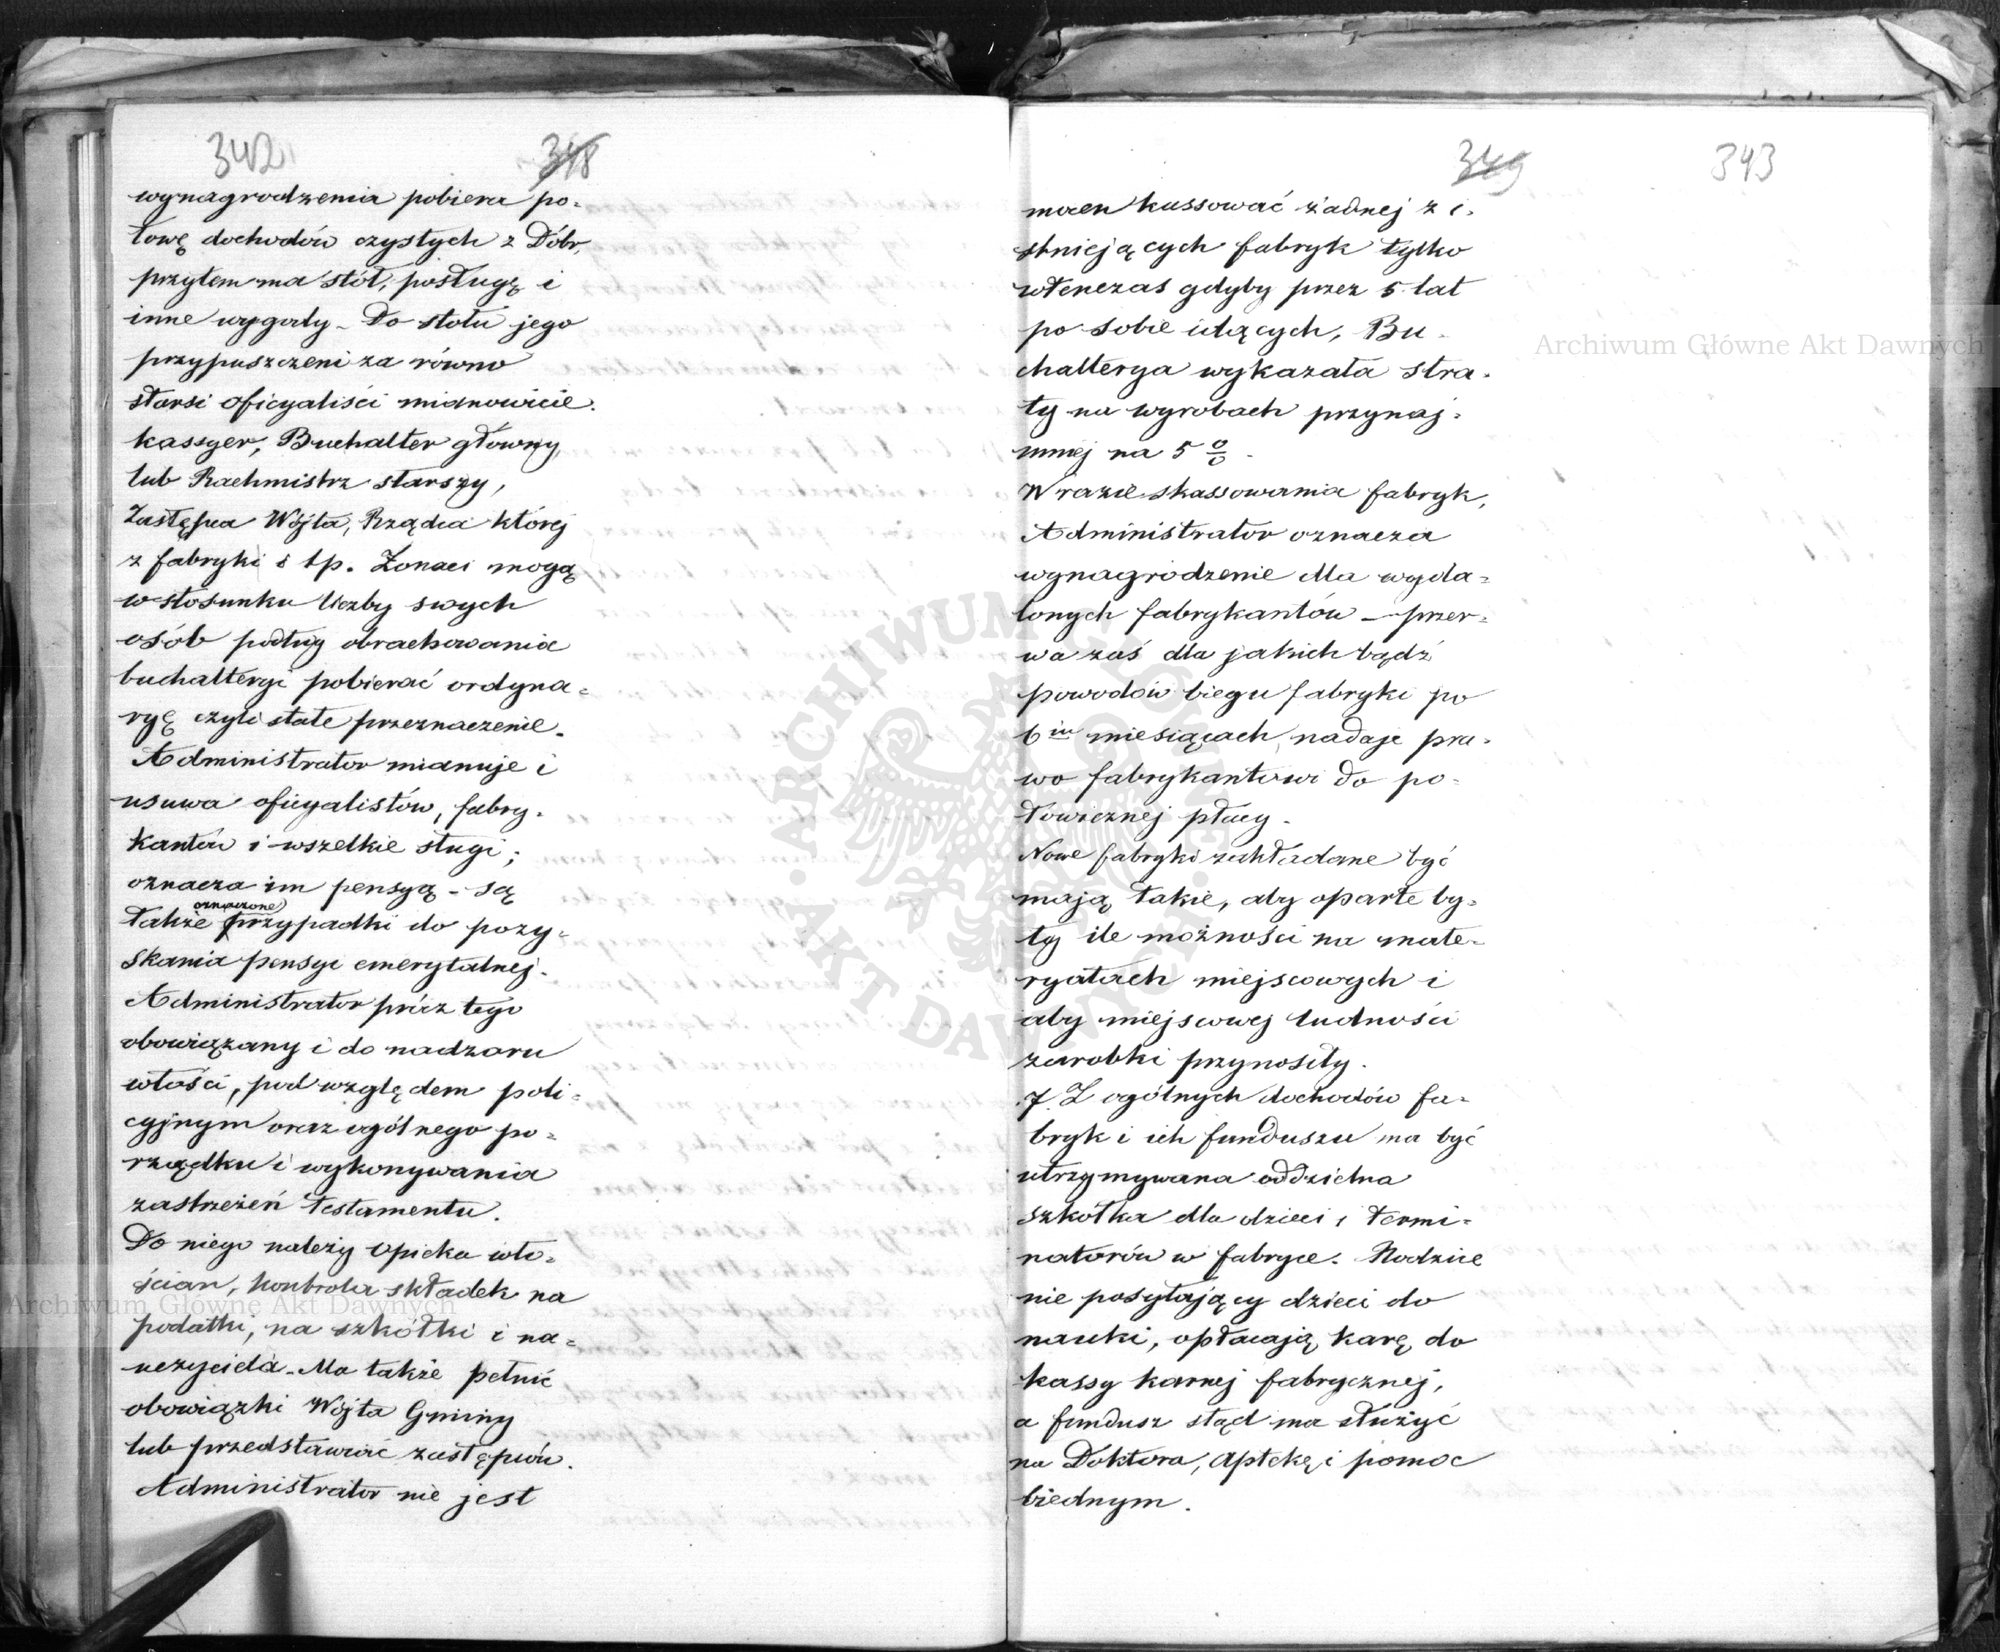 342 348
wynagrodzenia pobiera po-
łowę dochodów czystych z Dóbr,
przytem ma stół, posługę i
inne wygody – Do stołu jego
przypuszczeni za równo
starsi oficyaliści mianowicie.
kassyer, Buchalter główny
lub Rachmistrz starszy,
Zastępca Wójta, Rządca której
z fabryki i tp. Żonaci mogą
w stosunku liczby swych
osób podług obrachowania
buchalteryi pobierać ordyna=
ryę czyli stałe przeznaczenie.
Administrator mianuje i
usuwa oficyalistów, fabry-
kantów i wszelkie sługi;
oznacza im pensyą – są
oznaczone
także przypadki do pozy=
skania pensyi emerytalnej.
Administrator prócz tego
obowiązany i do nadzoru
włości, pod względem poli=
cyjnym oraz ogólnego po=
rządku i wykonywania
zastrzeżeń testamentu.
Do niego należy opieka wło=
ścian, kontrola składek na
podatki, na szkółki i na=
uczyciela – Ma także pełnić
obowiązki Wójta Gminy
lub przedstawiać zastępców.
Administrator nie jest
349 343
mocen kassować żadnej z i-
stniejących fabryk tylko
wtenczas gdyby przez 5 lat
po sobie idących, Bu-
chalterya wykazała stra-
ty na wyrobach przynaj-
mniej na 5 %.
W razie skassowania fabryk,
Administrator oznacza
wynagrodzenie dla wyda=
lonych fabrykantów – przer=
wa zaś dla jakich bądź
powodów biegu fabryki po
6iu miesiącach, nadaje pra-
wo fabrykantowi do po-
łowicznej płacy.
Nowe fabryki zakładane być
mają takie, aby oparte by-
ły ile możności na mate-
ryałach miejscowych i
aby miejscowej ludności
zarobki przynosiły.
7. Z ogólnych dochodów fa-
bryk i ich funduszu ma być
utrzymywana oddzielna
szkółka dla dzieci i termi-
natorów w fabryce. Rodzice
nie posyłający dzieci do
nauki, opłacają karę do
kassy karnej fabrycznej,
a fundusz stąd ma służyć
na Doktora, aptekę i pomoc
biednym.
Archiwum Główne Akt Dawnych
Archiwum Główne Akt Dawnych
ARCHIWUM GŁÓWNE · AKT DAWNYCH ·